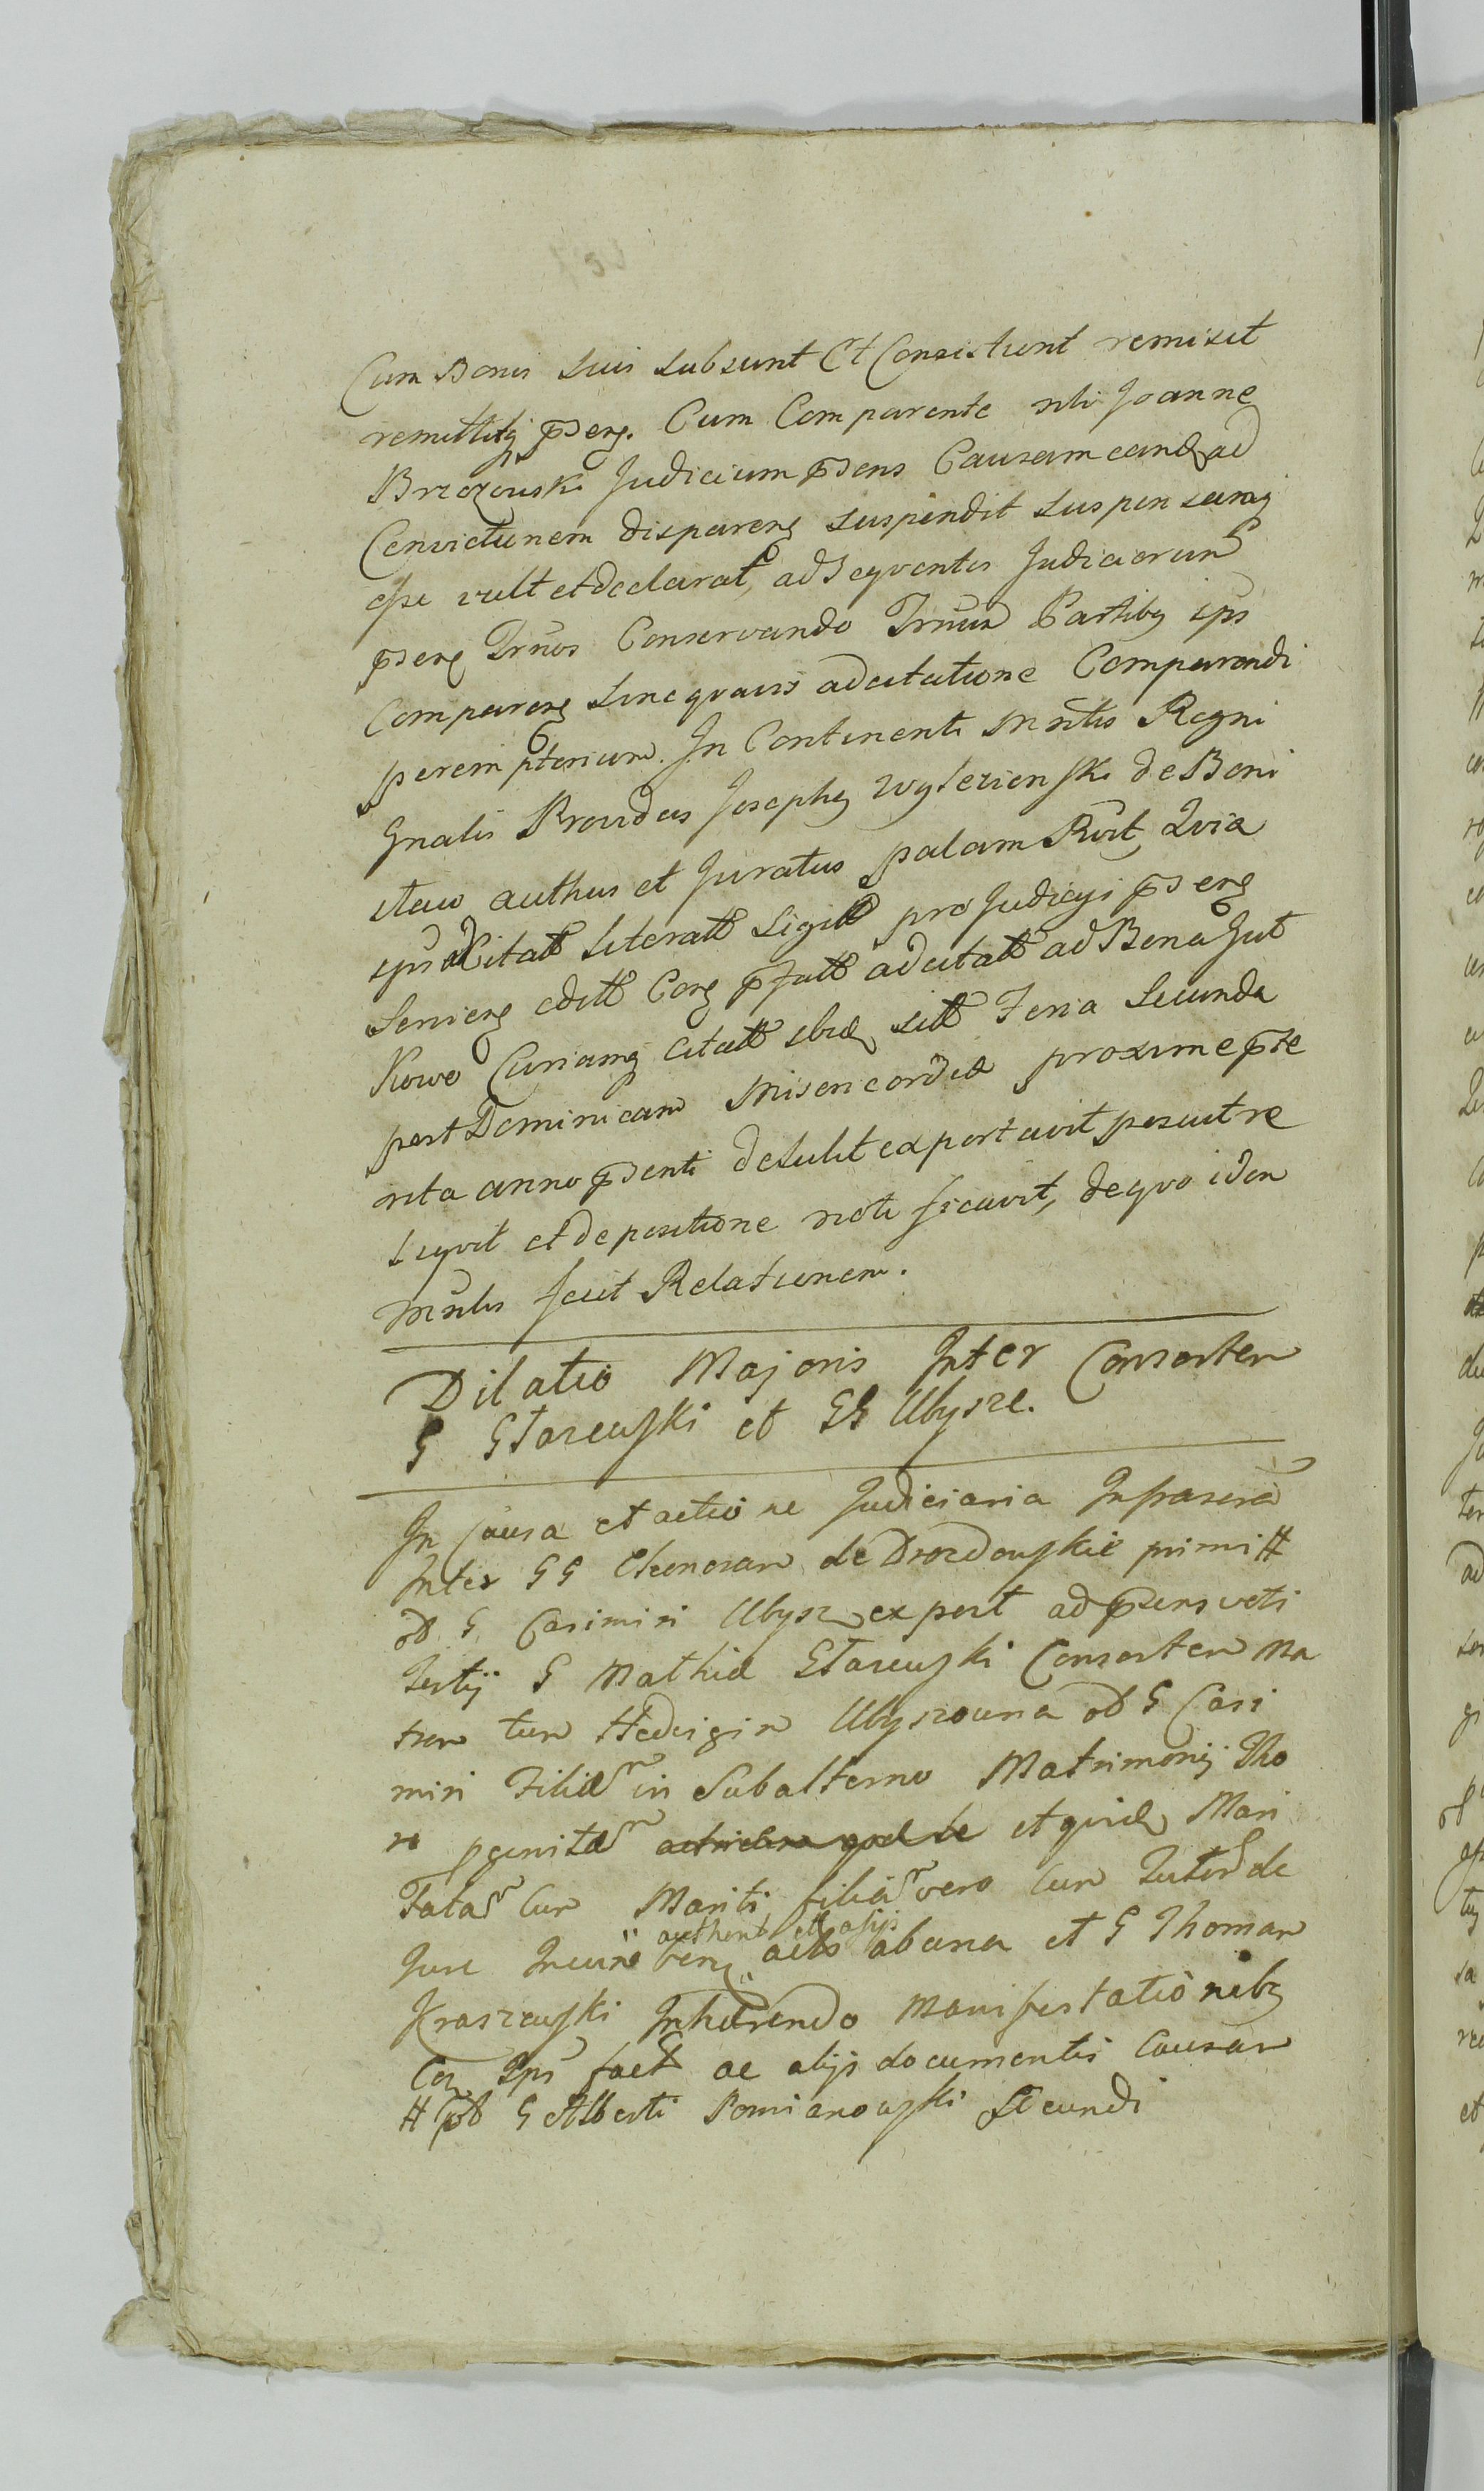 Cum Bonis suis subsunt Et Consistunt remisit
remittitq p̃seng. Cum Comparente nli Joanne
Brzozowski Judicium p̃sens Causam eandq ad
Convictionem dispareng suspendit suspensamq
esse vult et declarat, ad seqventes Judiciorum
p̃seng Trnos Conservando Trnum Partibq ips
Compareng sine qvavis adcitatione Comparendi
peremptorium. In Continenti Mnlis Regni
Gnalis Providus Josephq Wylezienski de Boni
itaw authus et Juratus palam Rvit Qvia
ipse Citatt Literatt Sigitt pro Judicijs p̃seng
Servieng editt Corg p̃fatt adcitatt ad Bona Gut
Kowo Curiamq citatt ibidq sitt Feria Secunda
post Dominicam Misericordiæ proxime p̃te
rita anno p̃senti detulit exportavit posuit re
liqvit et de positione notificavit, de qvo idem
Mnlis fecit Relationem.
Dilatio Majoris Inter Consorten
G Starewski et GG Ubysze.
In Causa et actione Judiciaria Infrascra
Inter GG Eleonoram de Drozdowskie primi #
ol G Casimiri Ubysz ex post ad p̃sens voti
Tertij G Mathiæ Starewski Consorten Ma
tren tum Hedvigin Ubyszowna ol G Casi
miri Filiam in Subalterno Matrimonij Tho
ro genitam et qvidq Mari
Tatam Cum Mariti filiam vero Cum Tutor de
Jure authent et alijs
acto ab una et G Thoman
Kraszewski Inhærendo Manifestationibq
Cor Ips fact ac alijs documentis Causam
# ol G Alberti Pomianowski Secundi